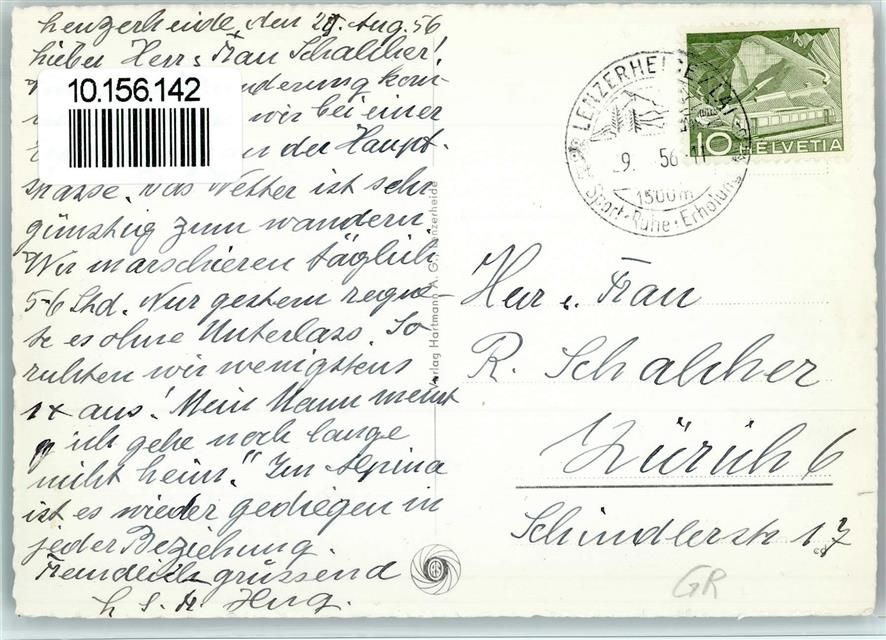 Lenzerheide, den 29. Aug. 56
Lieber Herr u. Frau Schalcher!
10.156.142
nderung kom-
wir bei einer
an der Haupt-
strasse. Das Wetter ist sehr
günstig zum wandern.
Wir marschieren täglich
5-6 Std. Nur gestern regne-
te es ohne Unterlass. So
ruhten wir wenigstens
1x aus! Mein Mann meint
"ich gehe noch lange
nicht heim." Im Alpina
ist es wieder gediegen in
jeder Beziehung.
Freundlich grüssend
Hug.
Verlag Hartmann A. G., Lenzerheide
LENZERHEIDE/LAI
9. 56-11
1500 m
Sport-Ruhe-Erholung
10 HELVETIA
Herr u. Frau
R. Schalcher
Zürich 6
Schindlerstr. 17
GR